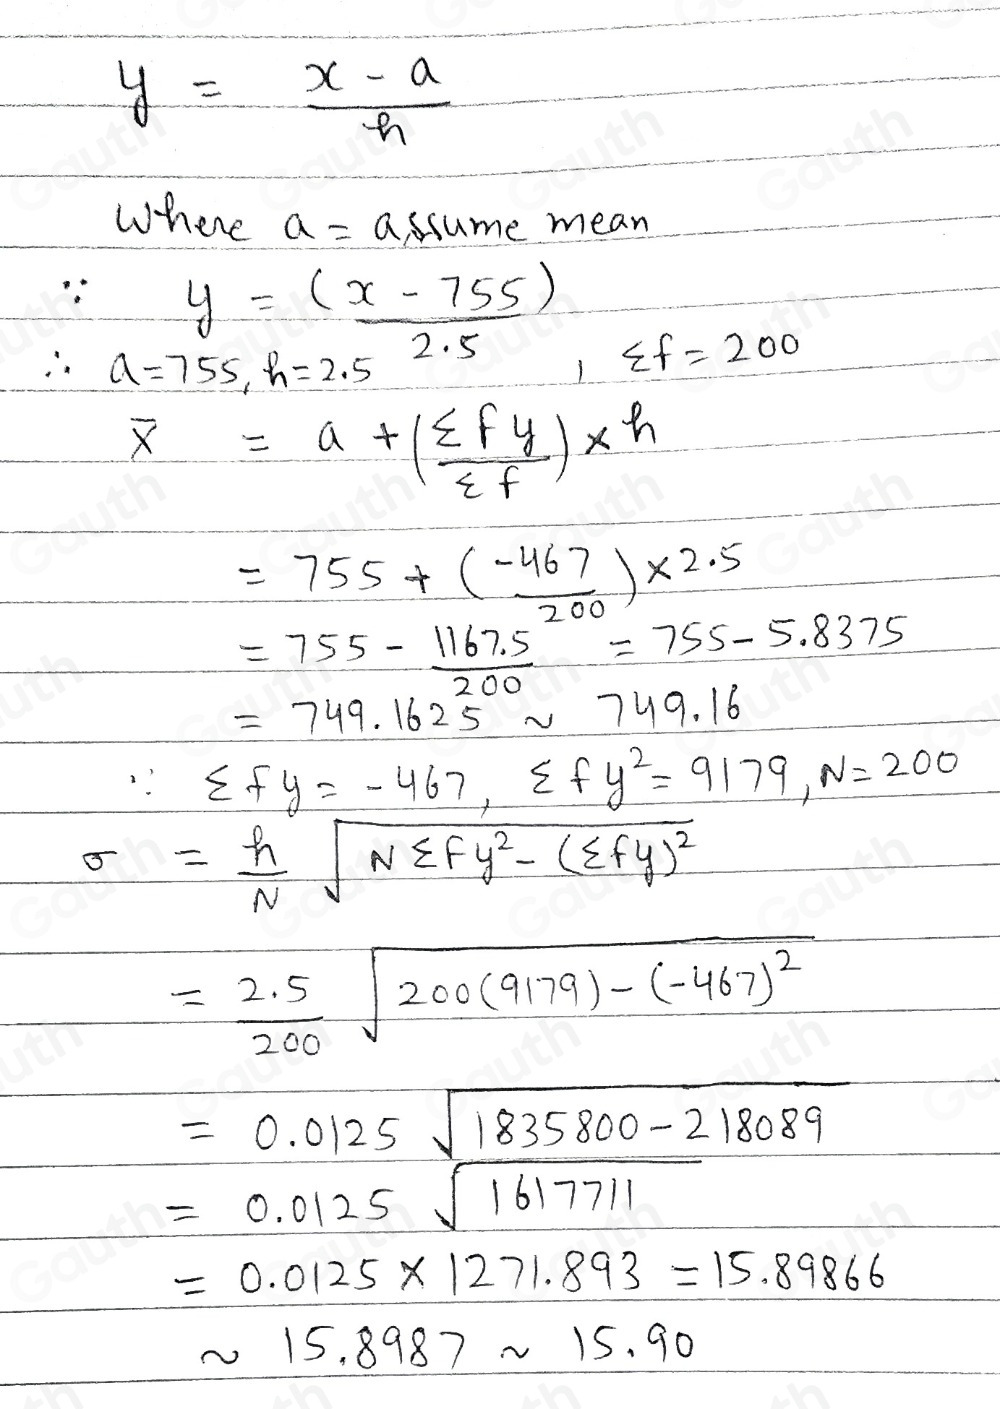 y = x - a / h
Where a = assume mean
∵ y = (x - 755) / 2.5
∴ a=755, h=2.5 , Σf = 200
x̄ = a + (Σfy / Σf) × h
= 755 + (-467 / 200) × 2.5
= 755 - 1167.5 / 200 = 755 - 5.8375
= 749.1625 ~ 749.16
∵ Σfy = -467, Σfy² = 9179, N = 200
σ = h / N √(NΣfy² - (Σfy)²)
= 2.5 / 200 √(200(9179) - (-467)²)
= 0.0125 √(1835800 - 218089)
= 0.0125 √(1617711)
= 0.0125 × 1271.893 = 15.89866
~ 15.8987 ~ 15.90